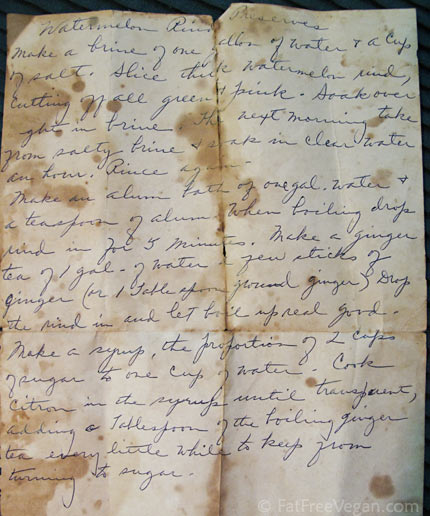 Watermelon Rind Preserves
Make a brine of one gallon of water & a cup
of salt. Slice thick watermelon rind,
cutting off all green & pink. Soak over
ght in brine. The next morning take
from salty brine & soak in clear water
an hour. Rince again.
Make an alum bath of one gal. water &
a teaspoon of alum. When boiling drop
rind in for 5 minutes. Make a ginger
tea of 1 gal. of water few sticks of
ginger (or 1 Tablespoon ground ginger) Drop
the rind in and let boil up real good.
Make a syrup, the proportion of 2 cups
of sugar to one cup of water. Cook
citron in the syrup until transparent,
adding a Tablespoon of the boiling ginger
tea every little while to keep from
turning to sugar.
© FatFreeVegan.com